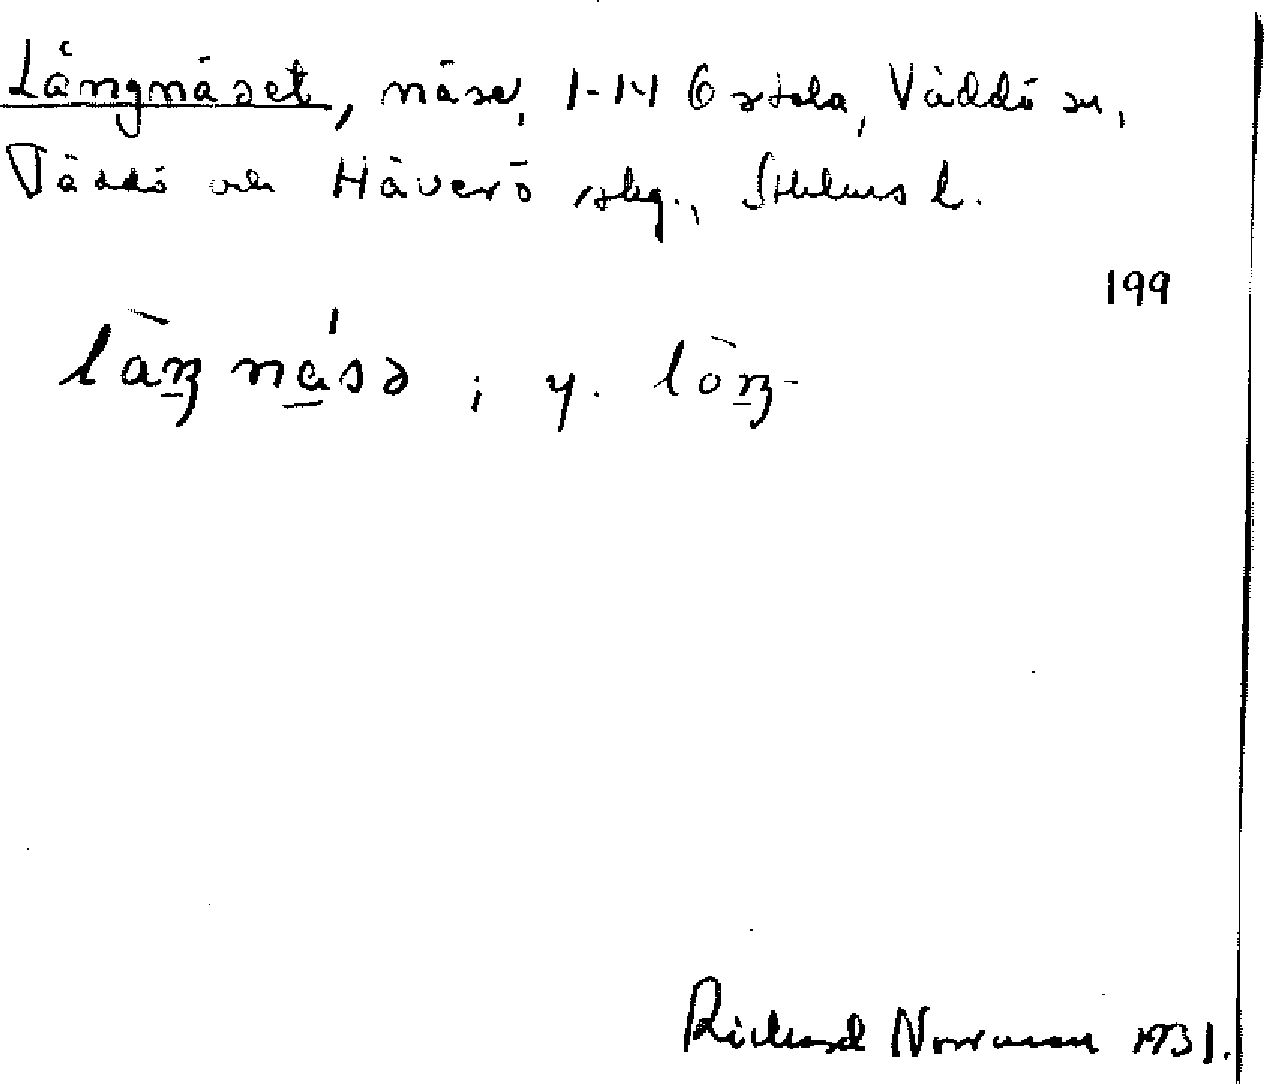 Långnäset, näse, 1-14 Gstala, Väddö sn,
Väddö och Häverö skg., Sthlms l.
199
làŋ näsə, y. lòŋ-
Richard Norrman 1931.